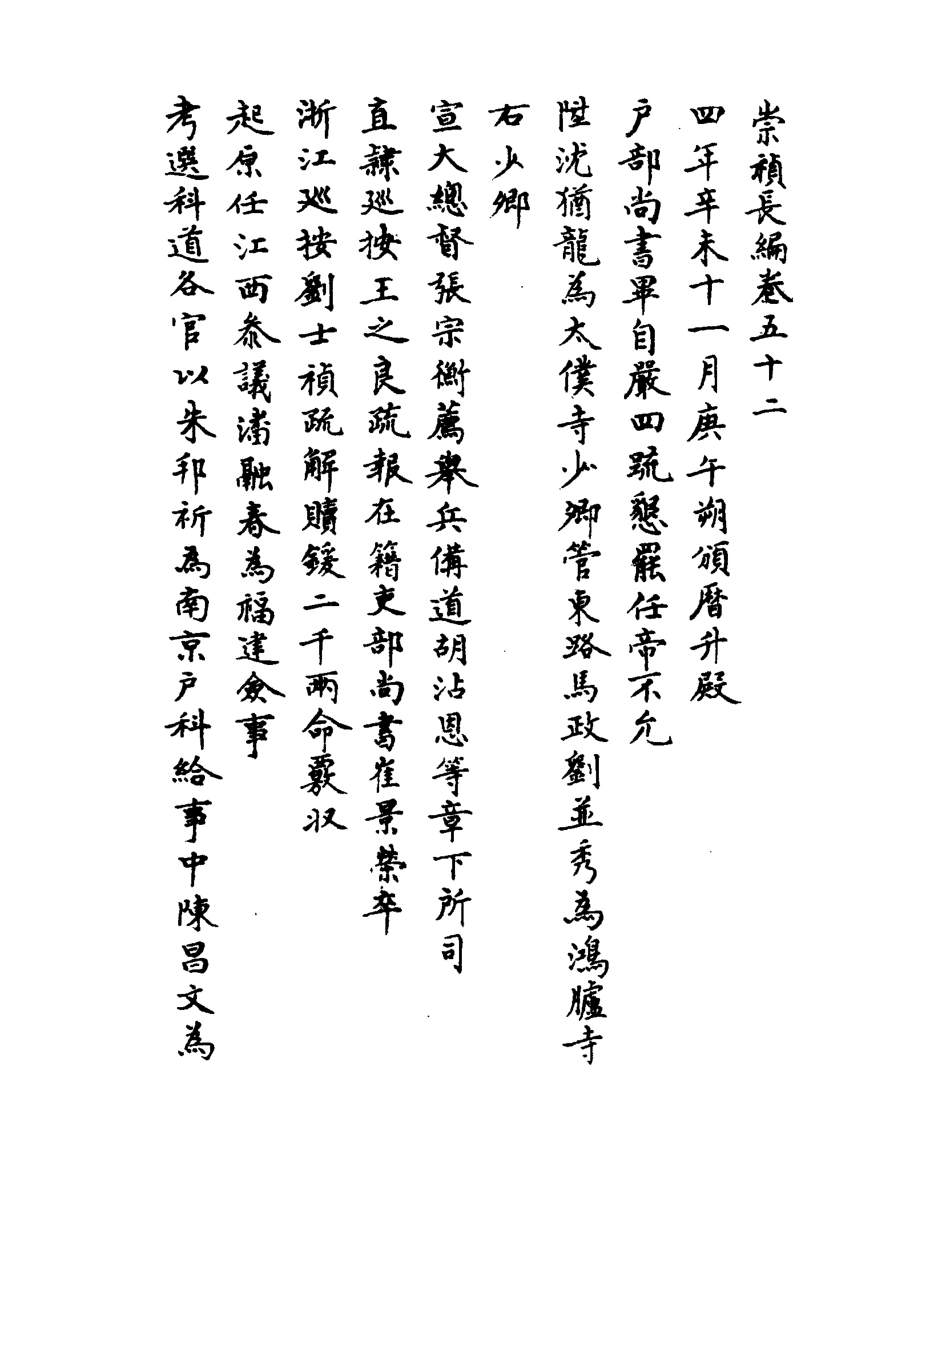 崇禎長編卷五十二
四年辛未十一月庚午朔頒曆升殿
戶部尚書畢自嚴四疏懇罷任帝不允
陞沈猶龍為太僕寺少卿管東路馬政劉並秀為鴻臚寺
右少卿
宣大總督張宗衡薦舉兵備道胡沾恩等章下所司
直隸巡按王之良疏報在籍吏部尚書崔景榮卒
浙江巡按劉士禎疏解贖鍰二千兩命覈収
起原任江西叅議潘融春為福建僉事
考選科道各官以朱邦祈為南京戶科給事中陳昌文為